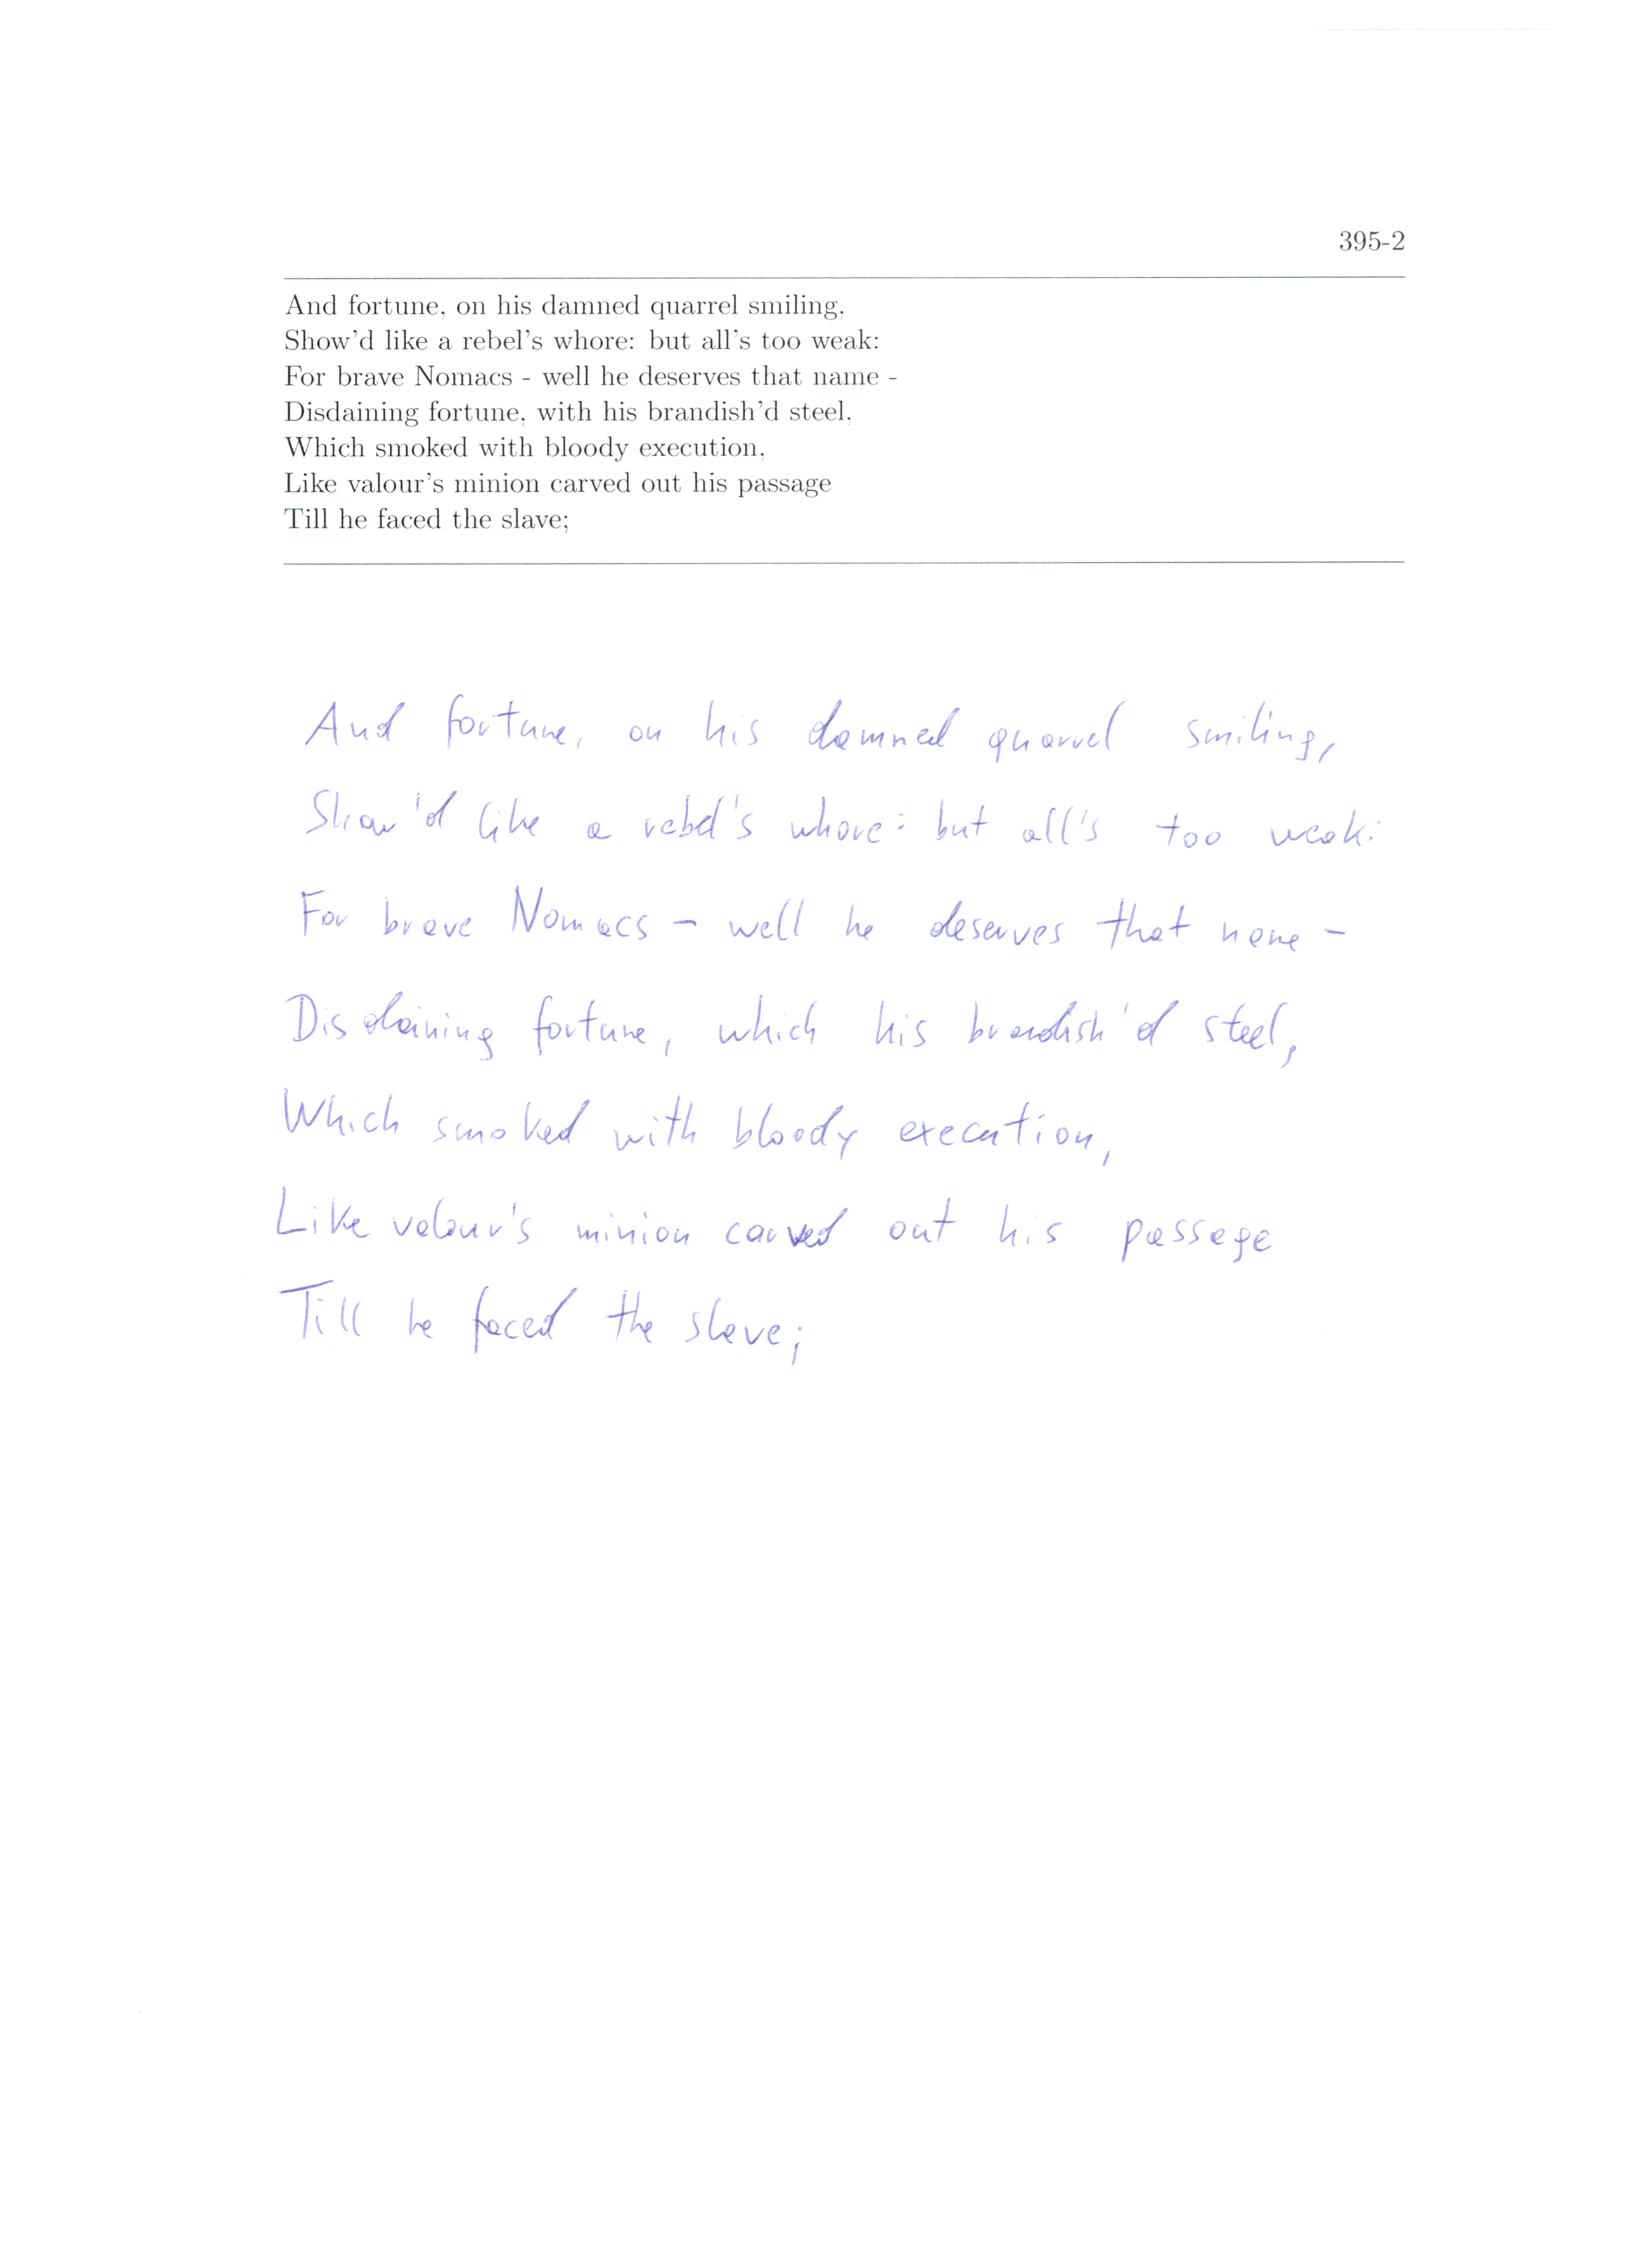 395-2
And fortune, on his damned quarrel smiling,
Show'd like a rebel's whore: but all's too weak:
For brave Nomacs - well he deserves that name -
Disdaining fortune, with his brandish'd steel,
Which smoked with bloody execution,
Like valour's minion carved out his passage
Till he faced the slave;
And fortune, on his damned quarrel smiling,
Show'd like a rebel's whore: but all's too weak:
For brave Nomacs - well he deserves that name -
Disdaining fortune, which his brandish'd steel,
Which smoked with bloody execution,
Like valour's minion carved out his passage
Till he faced the slave;